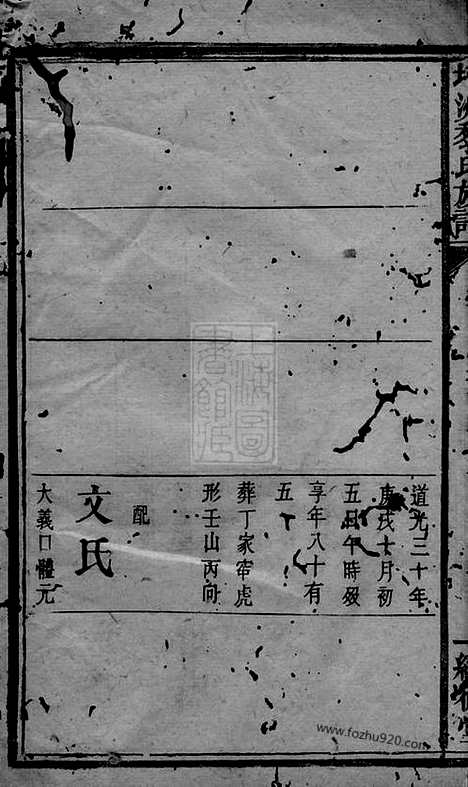 道光三十年
庚戌十月初
五日午時歿
享年八十有
五
葬丁家䆫虎
形壬山丙向
配
文氏
大義口體元
氏族譜
上海圖書館藏
www.fozhu920.com